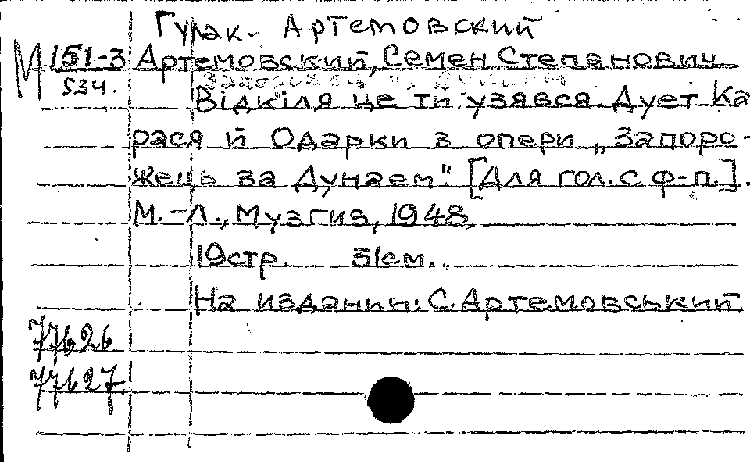 Гулак-Артемовский
М 151-3 Артемовский, Семен Степанович
534.
Відкіля це ти узявся. Дует Ка
рася й Одарки з опери „Запоро-
жець за Дунаем". [Для гол. с ф-п.].
М.-Л., Музгиз, 1948.
19стр. 31см.
На издании: С. Артемовський
77626
77627